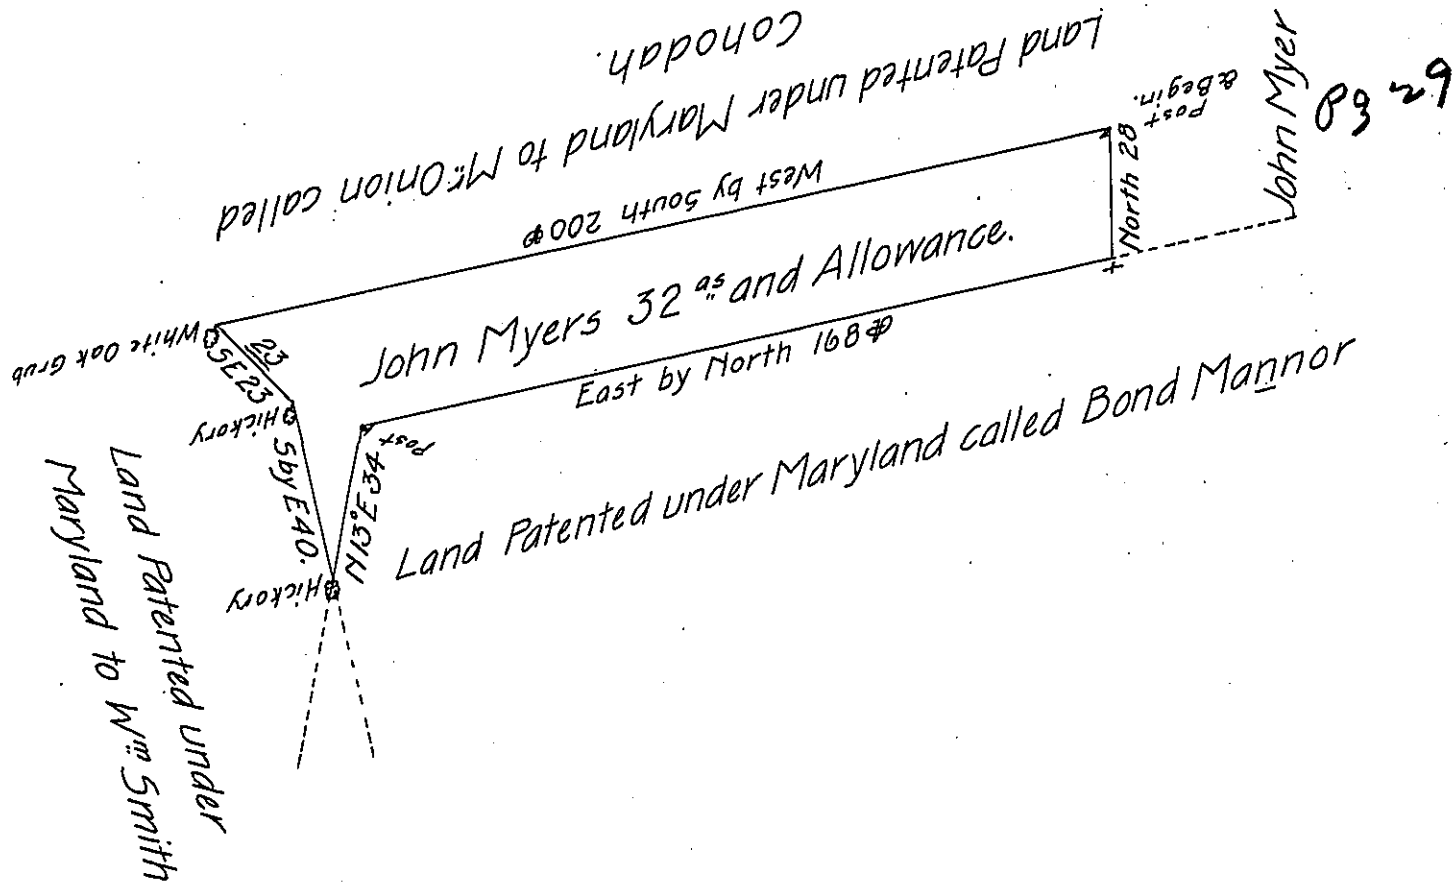 Land Patented under Maryland to Mr. Onion called
Cohodah.
Post
& Begin.
John Myer
Pg 29
West by South 200
North 28
John Myers 32 as and Allowance.
East by North 168
White Oak Grub
SE 23
23
Hickory
S by E 40.
Post
N 13° E 34
Hickory
Land Patented under Maryland called Bond Mannor
Land Patented under
Maryland to Wm Smith